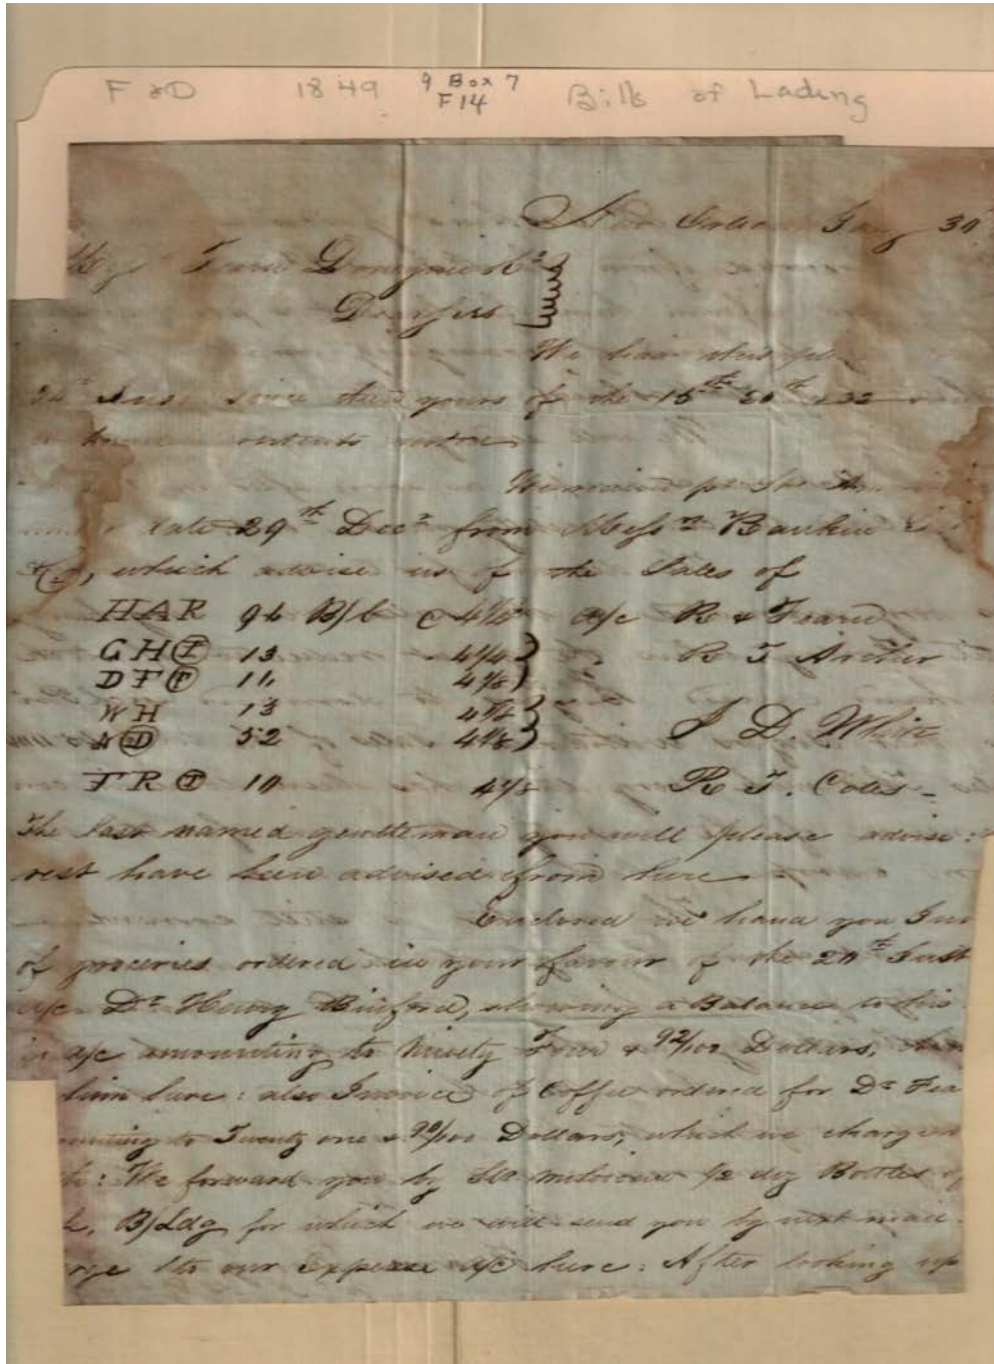 F & D 1849 9 Box 7 Bills of Lading
F14
New Orleans Jany 30
Fearn Donegan & Co
We have this
24th Inst since then yours of the 18th 20th & 22
contents noted
We received per
date 29th Decr from Messrs Rankin
which advise us of the Sales of
HAR 96 B/b @ 4 1/2 a/c R & Fearn
GH(T) 13 4 1/4 } R T Archer
DF(T) 11 4 1/8 }
WH 13 4 7/8 } J D. White
A(D) 52 4 7/8 }
FR(T) 10 4 1/2 R. T. Coles -
The last named gentleman you will please advise:
rest have been advised from here
Enclosed we hand you Inv
of groceries ordered in your favour of the 20th Inst
a/c Dr Henry Binford, showing a Balance to his
a/c amounting to Ninety Four & 92/100 Dollars,
him here: also Invoice of Coffee ordered for Dr Fea
ounting to Twenty one & 90/100 Dollars, which we charge
We forward you by Str 1/2 doz Bottles of
B/Ldg for which we will send you by next mail.
to our Expense a/c here: After looking up